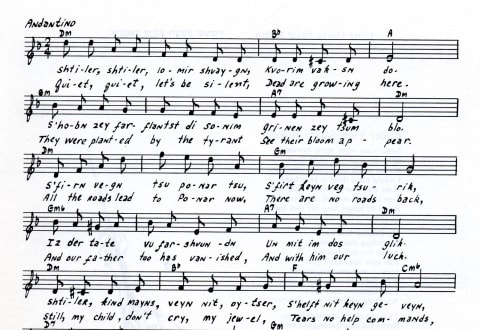 Andantino
Dm B♭ A
shti-ler, shti-ler, lo-mir shvay-gn, Kvo-rim vak-sn do.
Qui-et, qui-et, let's be si-lent, Dead are grow-ing here.
Gm A7 Dm
S'ho-bn zey far-flantst di so-nim gri-nen zey tsum blo.
They were plant-ed by the ty-rant See their bloom ap-pear.
Dm Gm
S'fi-rn ve-gn tsu po-nar tsu, S'firt keyn veg tsu-rik,
All the roads lead to Po-nar now, There are no roads back,
Gm6 A7 Dm
Iz der ta-te vu far-shvun-dn Un mit im dos glik.
And our fa-ther too has van-ished, And with him our luck.
Dm B♭ F Cm6
shti-ler, kind mayns, veyn nit, oy-tser, S'helft nit keyn ge-veyn,
Still, my child, don't cry, my jew-el, Tears no help com-mands,
D7 Gm